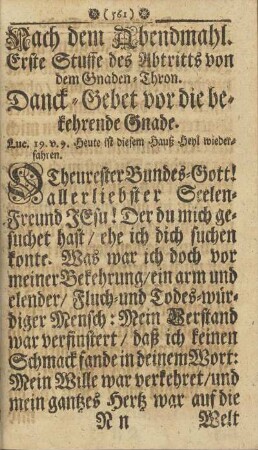 (561)
Nach dem Abendmahl.
Erste Stuffe des Abtritts von
dem Gnaden-Thron.
Danck-Gebet vor die be-
kehrende Gnade.
Luc. 19. v. 9. Heute ist diesem Hauß Heyl wieder-
fahren.
O Theurester Bundes-Gott!
allerliebster Seelen-
Freund JEsu! Der du mich ge-
suchet hast/ ehe ich dich suchen
konte. Was war ich doch vor
meiner Bekehrung/ ein arm und
elender/ Fluch- und Todes-wür-
diger Mensch: Mein Verstand
war verfinstert/ daß ich keinen
Schmack fande in deinem Wort:
Mein Wille war verkehret/ und
mein gantzes Hertz war auf die
N n Welt